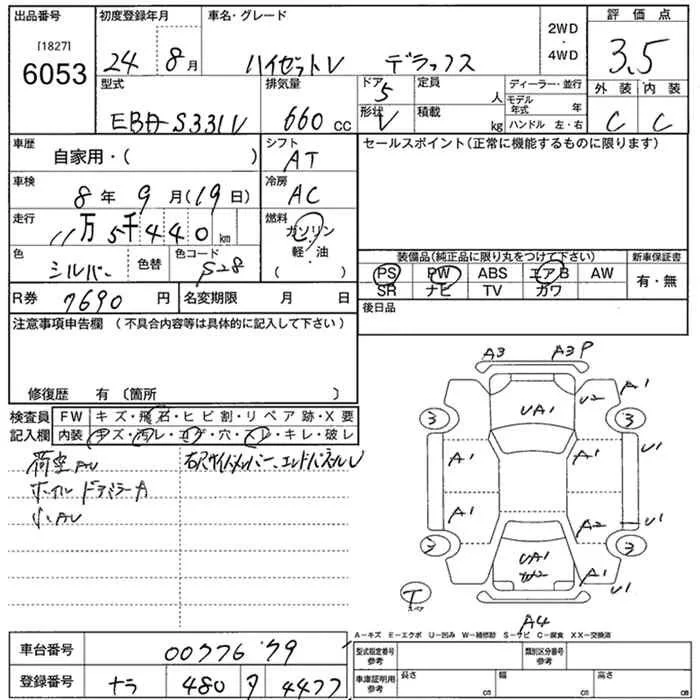 出品番号 初度登録年月 車名・グレード 2WD・4WD 評価点
[1827]
6053 24 8月 ハイゼットV デラックス 3.5
型式 排気量 ドア 5 定員 人 ディーラー・並行 外装 内装
EBA-S331V 660cc 形状 V 積載 kg モデル年式 年 ハンドル 左・右 C C
車歴 自家用・( ) シフト AT セールスポイント(正常に機能するものに限ります)
車検 8年 9月(19日) 冷房 AC
走行 11万5千440km 燃料 ガソリン 軽・油 ( )
色 シルバー 色替 色コード S28
装備品(純正品に限り丸をつけて下さい) 新車保証書
PS PW ABS エアB AW 有・無
SR ナビ TV カワ
R券 7690円 名変期限 月 日 後日品
注意事項申告欄 (不具合内容等は具体的に記入して下さい)
修復歴 有 〔箇所 〕
検査員記入欄 FW キズ・飛石・ヒビ割・リペア跡・X要
内装 キズ・汚レ・コゲ・穴・スレ・キレ・破レ
荷室AU
小AU
A3 A3P
A1
U2
UA1
3 3
A1 A1 U1
A1 A2 U1
3 3
UA1
W2
A1 U1
T
A4
A−キズ E−エクボ U−凹み W−補修跡 S−サビ C−腐食 XX−交換済
車台番号 0077679 型式指定番号 参考 類別区分番号 参考
登録番号 ナラ 480 4477 車庫証明用 参考 長さ cm 幅 cm 高さ cm